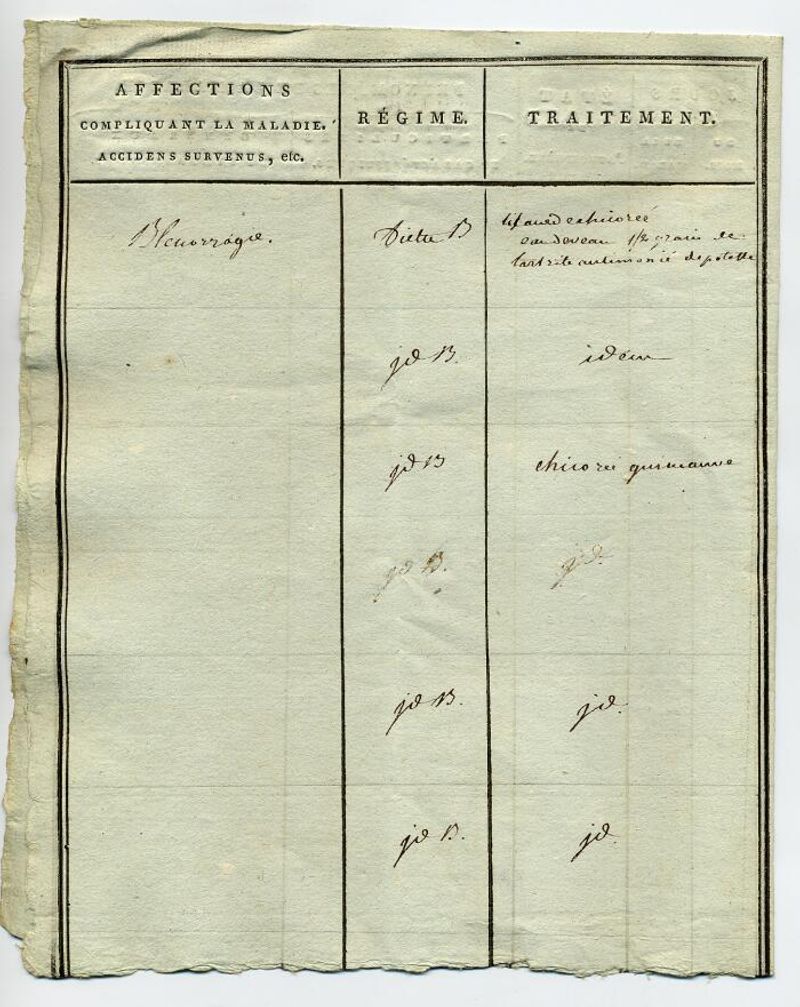 AFFECTIONS
COMPLIQUANT LA MALADIE.
ACCIDENS SURVENUS, etc.
RÉGIME.
TRAITEMENT.
Blenorragie.
Diette B
tisane de chicoreé
eau de veau 1/2 grain de
tartrite antimonié de potasse
jd B.
idem
jd B
chicoreé guimauve
jd B.
jd.
jd B.
jd.
jd B.
jd.